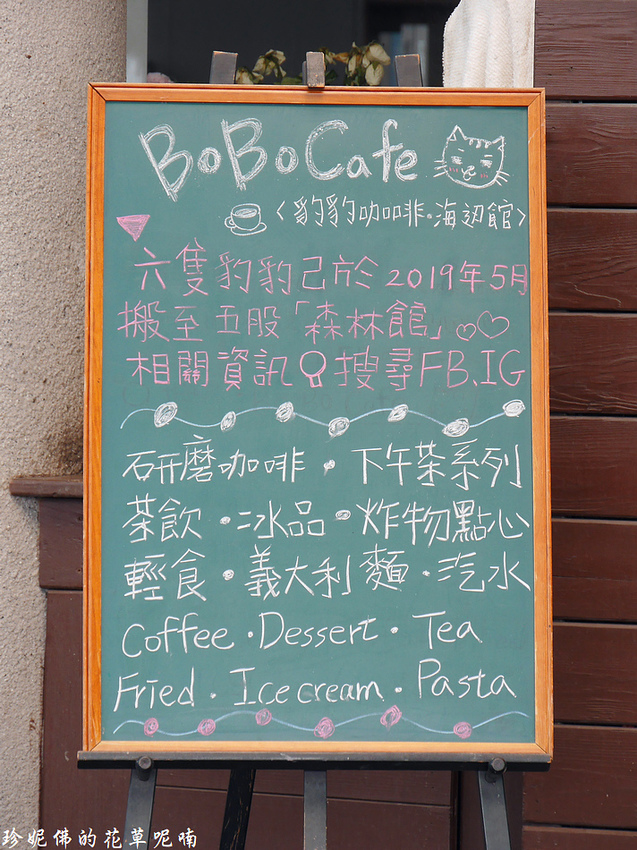 BoBoCafe
〈豹豹咖啡·海边館〉
六隻豹豹已於2019年5月
搬至五股「森林館」
相關資訊搜尋FB、IG
研磨咖啡·下午茶系列
茶飲·冰品·炸物點心
輕食·義大利麵·汽水
Coffee·Dessert·Tea
Fried·Ice cream·Pasta
珍妮佛的花草呢喃